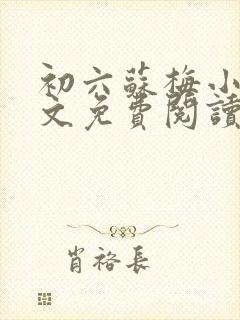 初六蘇梅小
文免費閱讀
肖裕長